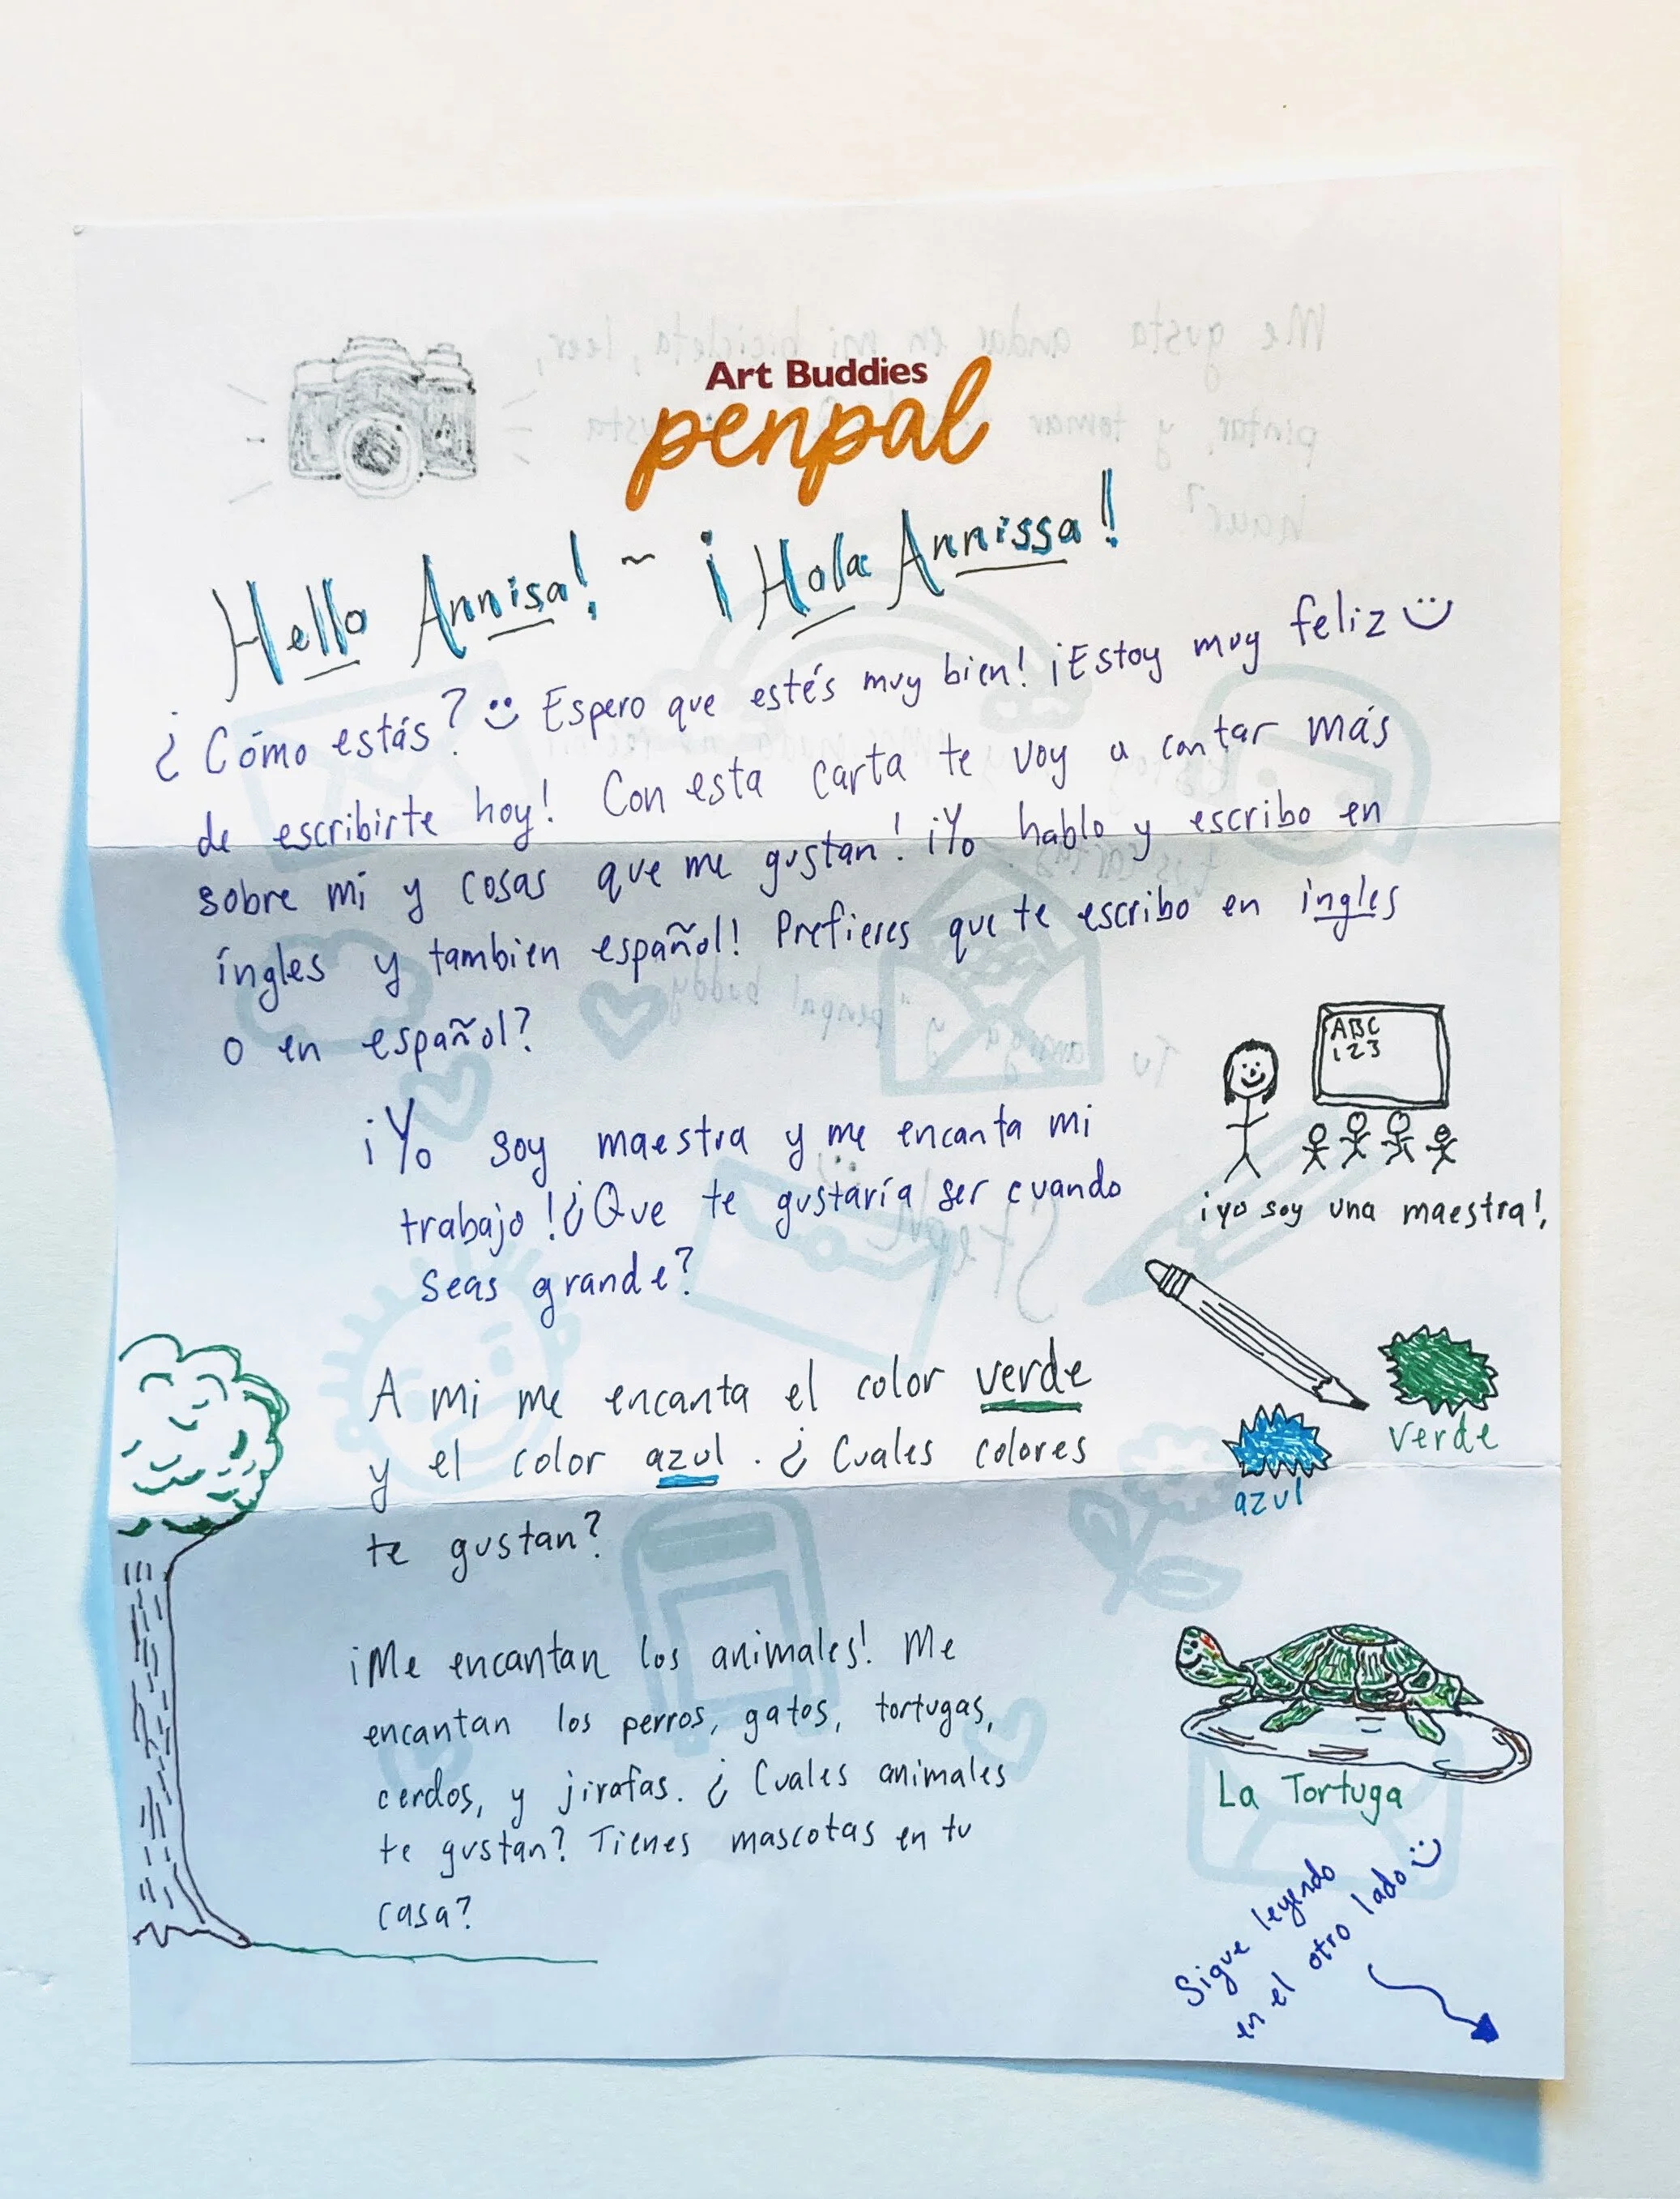 Art Buddies
penpal
Hello Annisa! ~ ¡Hola Annissa!
¿Cómo estás? Espero que estés muy bien! ¡Estoy muy feliz
de escribirte hoy! Con esta carta te voy a contar más
sobre mi y cosas que me gustan! ¡Yo hablo y escribo en
íngles y tambien español! Prefieres que te escribo en ingles
o en español?
ABC
123
¡Yo soy maestra y me encanta mi
trabajo! ¿Que te gustaría ser cuando
seas grande?
¡yo soy una maestra!
A mi me encanta el color verde
y el color azul. ¿Cuales colores
te gustan?
verde
azul
¡Me encantan los animales! Me
encantan los perros, gatos, tortugas,
cerdos, y jirafas. ¿Cuales animales
te gustan? Tienes mascotas en tu
casa?
La Tortuga
Sigue leyendo
en el otro lado
Me gusta andar en mi bicicleta, leer,
pintar, y tomar